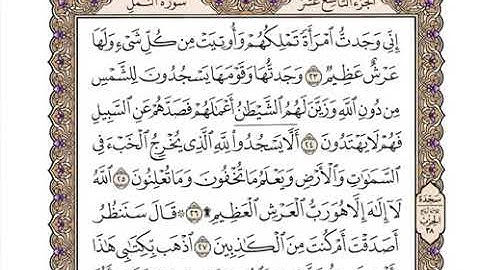 الجزء التاسع عشر سورة النمل
إِنِّي وَجَدتُّ ٱمْرَأَةً تَمْلِكُهُمْ وَأُوتِيَتْ مِن كُلِّ شَيْءٍ وَلَهَا
عَرْشٌ عَظِيمٌ ۝٢٣ وَجَدتُّهَا وَقَوْمَهَا يَسْجُدُونَ لِلشَّمْسِ
مِن دُونِ ٱللَّهِ وَزَيَّنَ لَهُمُ ٱلشَّيْطَٰنُ أَعْمَٰلَهُمْ فَصَدَّهُمْ عَنِ ٱلسَّبِيلِ
فَهُمْ لَا يَهْتَدُونَ ۝٢٤ أَلَّا يَسْجُدُوا۟ لِلَّهِ ٱلَّذِي يُخْرِجُ ٱلْخَبْءَ فِي
ٱلسَّمَٰوَٰتِ وَٱلْأَرْضِ وَيَعْلَمُ مَا تُخْفُونَ وَمَا تُعْلِنُونَ ۝٢٥ ٱللَّهُ
لَآ إِلَٰهَ إِلَّا هُوَ رَبُّ ٱلْعَرْشِ ٱلْعَظِيمِ ۩ ۝٢٦ قَالَ سَنَنظُرُ
أَصَدَقْتَ أَمْ كُنتَ مِنَ ٱلْكَٰذِبِينَ ۝٢٧ ٱذْهَب بِّكِتَٰبِي هَٰذَا
سجدة
الحزب
٣٨